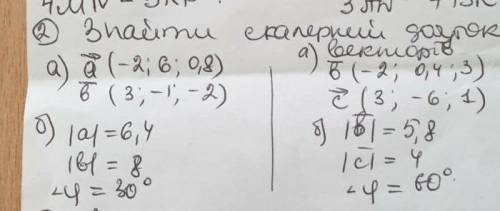 ② Знайти скалярний добуток
векторів
а) a⃗ (-2; 6; 0,8)
b̅ (3; -1; -2)
б) |a| = 6,4
|b| = 8
∠φ = 30°
а) b̅ (-2; 0,4; 3)
c⃗ (3; -6; 1)
б) |b̅| = 5,8
|c̅| = 4
∠φ = 60°